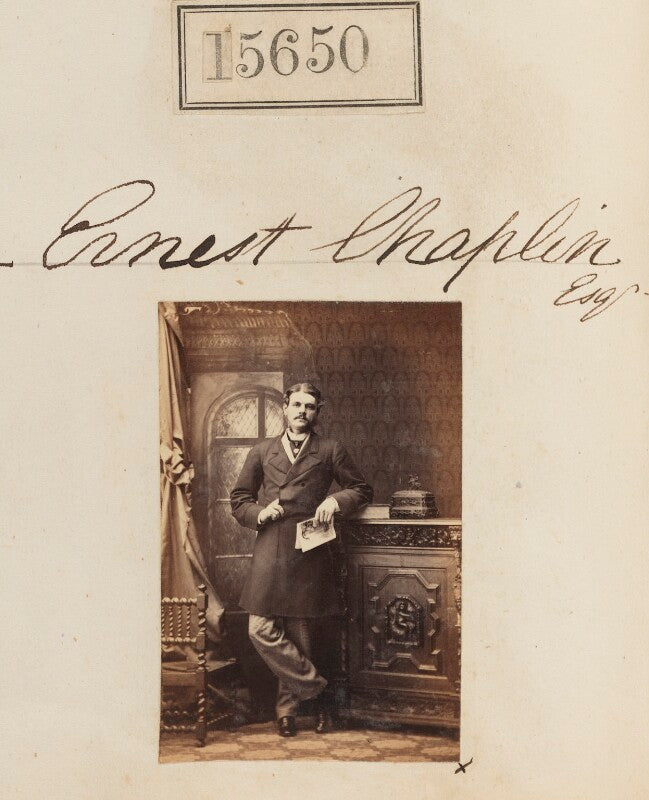 15650
Ernest Chaplin
Esqr
x